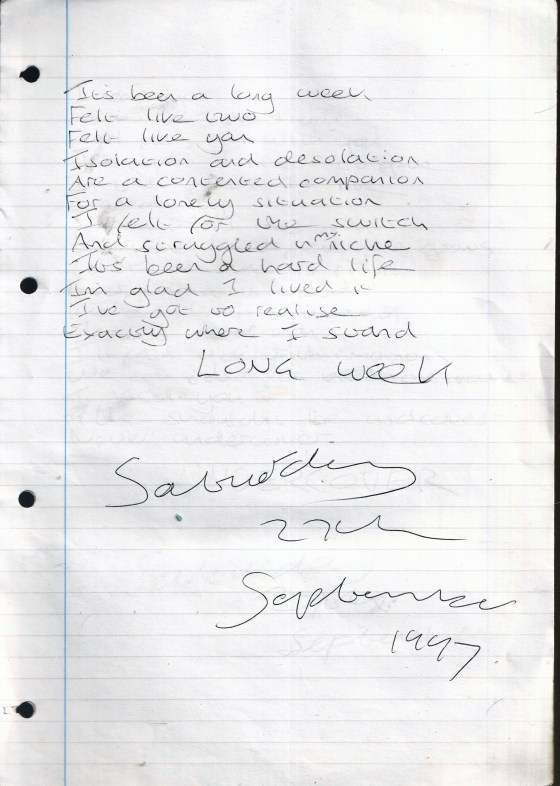 It's been a long week
Felt like two
Felt like year
Isolation and desolation
Are a contented companion
For a lonely situation
I felt for the switch
And struggled in my niche
It's been a hard life
Im glad I lived it
I've got to realise
Exactly where I stand
LONG WEEK
Saturday
27th
September
1997